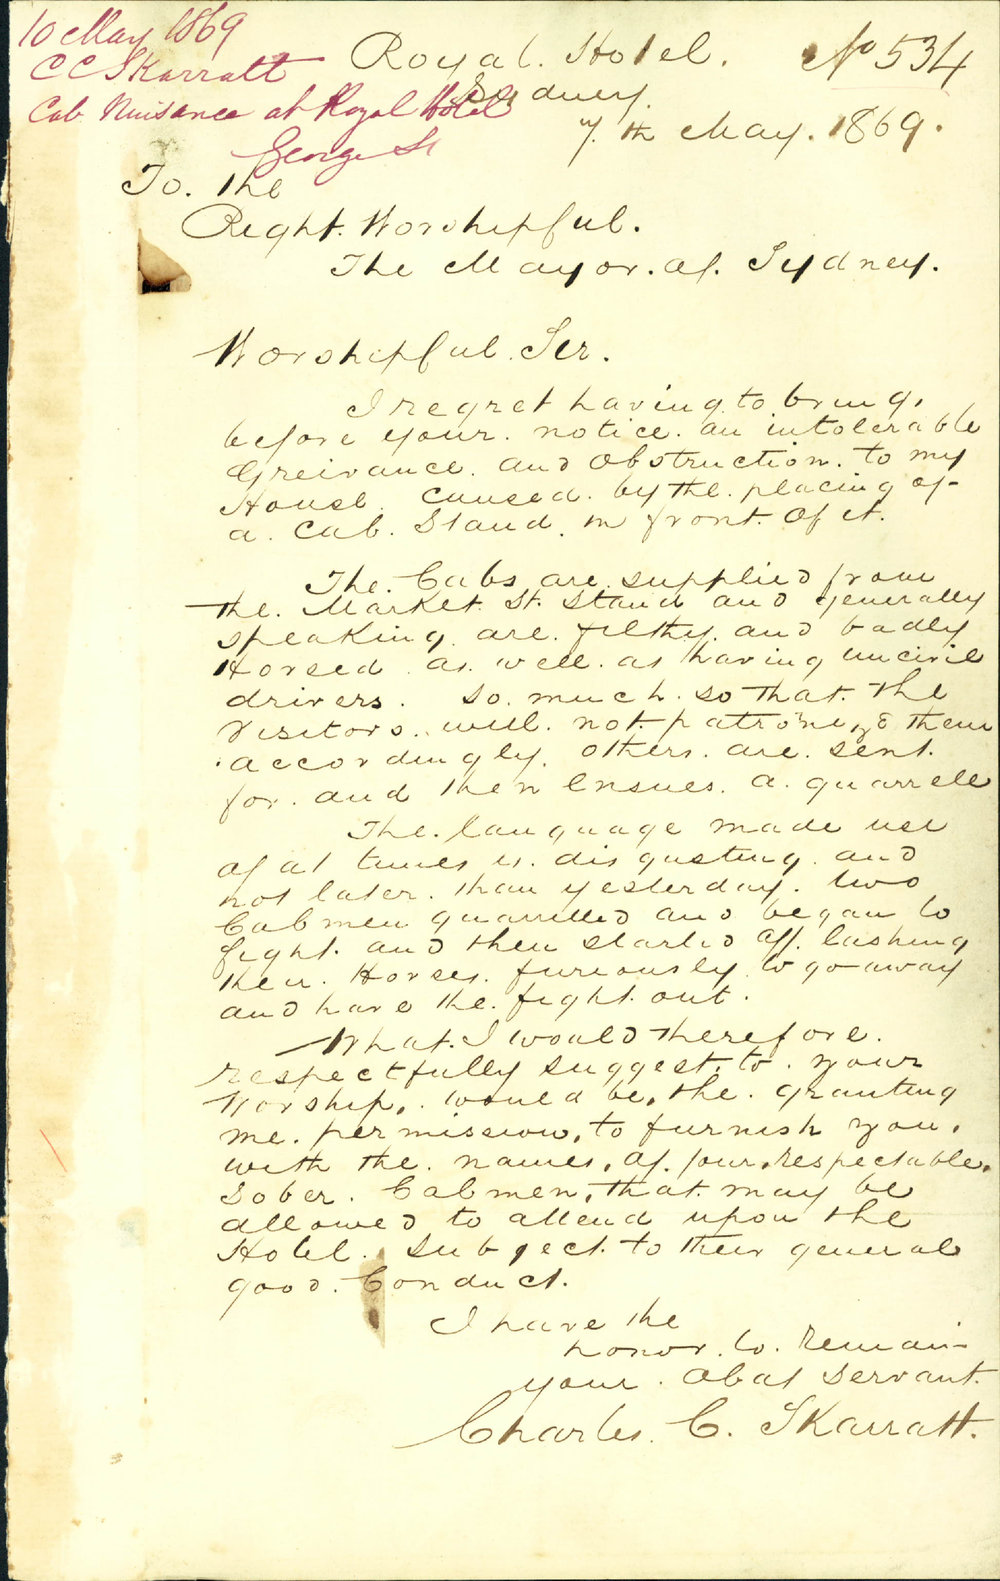 10 May 1869
C C Skarratt
Cab Nuisance at Royal Hotel
George St
Royal. Hotel.
No 534
Sydney.
7th May. 1869.
To. the
Right. Worshipful.
The Mayor. of. Sydney.
Worshipful. Sir.
I regret having to bring.
before your. notice. an intolerable
Greivance. and Obstruction. to my
House. caused. by the. placing of
a. Cab. Stand. in front. of it.
The. Cabs are. supplied from
the. Market. St. Stand and generally
speaking. are. filthy. and badly
Horsed. as. well. as having uncivil
drivers. So. much. so that. the
Visitors. will. not. patronize them
accordingly. others. are. sent.
for. and then Ensues. a. quarrell
The. language made use
of at times is. disgusting. and
not later. than yesterday. two
Cabmen quarrelled and began to
fight. and then started off. lashing
their. Horses. furiously. to go away
and have the. fight. out.
What. I would therefore.
respectfully suggest. to. your
Worship. would be. the. granting
me. permission. to furnish you.
with the. names. of. four. respectable.
Sober. Cabmen. that. may be
allowed to attend upon the
Hotel. Subject. to their general
good. Conduct.
I have the
honor. to. remain
your. Obdt Servant.
Charles. C. Skarratt.